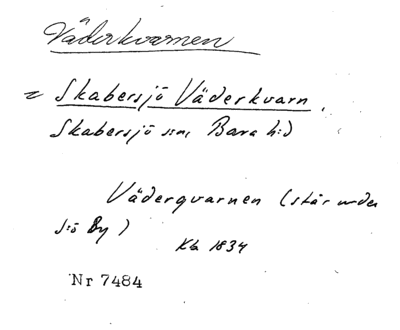 Väderkvarnen
= Skabersjö Väderkvarn,
Skabersjö sn, Bara h:d
Väderqvarnen (står under
S:ö By)
Kb 1834
Nr 7484